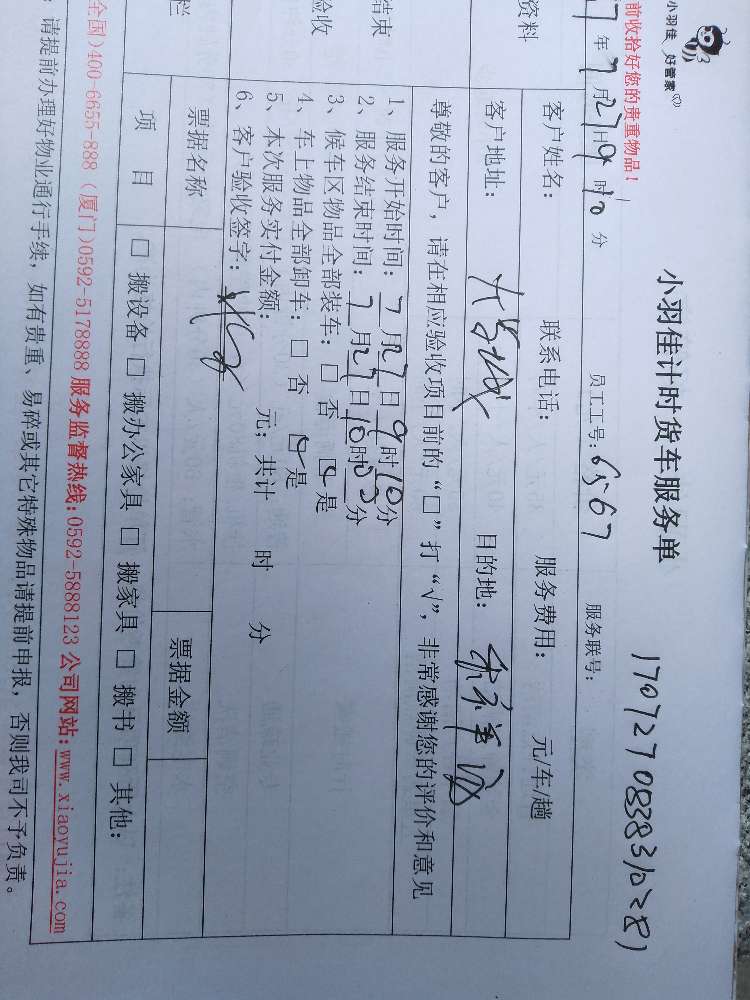 小羽佳 好管家
小羽佳计时货车服务单
170727083831028)
前收拾好您的贵重物品!
7年7月27日9时10分 员工工号:6567 服务联号:
资料
客户姓名: 联系电话: 服务费用: 元/车/趟
客户地址: 大学城 目的地:
尊敬的客户,请在相应验收项目前的“□”打“√”,非常感谢您的评价和意见
结束
验收
1、服务开始时间:7月27日9时10分
2、服务结束时间:7月27日10时00分
3、候车区物品全部装车:□否 ☑是
4、车上物品全部卸车:□否 ☑是
5、本次服务实付金额: 元;共计 时 分
6、客户验收签字:
栏
票据名称 票据金额
项目 □搬设备 □搬办公家具 □搬家具 □搬书 □其他:
全国)400-6655-888 (厦门)0592-5178888 服务监督热线:0592-5888123 公司网站:www.xiaoyujia.com
:请提前办理好物业通行手续,如有贵重、易碎或其它特殊物品请提前申报,否则我司不予负责。